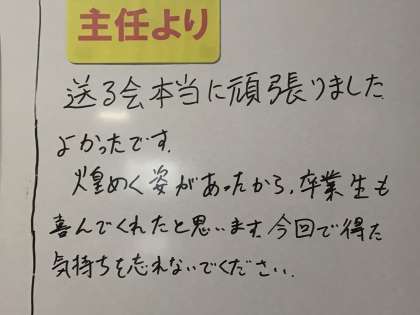 主任より
送る会本当に頑張りました
よかったです.
煌めく姿があったから、卒業生も
喜んでくれたと思います.今回で得た
気持ちを忘れないでください.